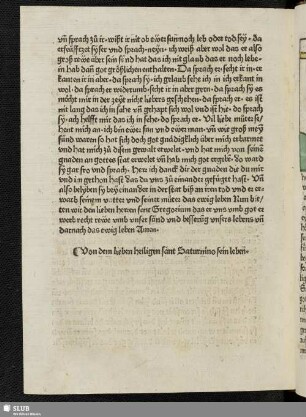 vñ sprach zů ir·wißt ir nit ob eüwer sun noch leb oder tod sey·da
ersüfftzet sy ser vnd sprach·neyn·ich weiß aber wol das er also
groß reüw aber sein sünd hat das ich mit glaub das er noch lebe·
in hab dann got größlichen enthalten·Da sprach er·secht ir in·er
kanten ir in aber·da sprach sy·ich gelaub sehe ich in ich erkant in
wol·da sprach er widerumb·sicht ir in aber gern·da sprach sy es
möcht mir in der zeyt nicht liebers geschehen·da sprach er·es ist
nit lang das ich in sahe vñ gehapt sich wol vnd ist hie·do sprach
sy·ach helfft mir das ich in sehe·do sprach er·Vil liebe můter se/
hent mich an·ich bin eüwer sun vnd eüwer man·vñ wie groß mein
sünd waren so hat sich doch got gnädiglich über mich erbarmet
vnd hat mich zů disem gewalt erwelet·vnd hat mich von seinen
gnaden an gottes stat erwelet vñ hab mich got ergeben·Do ward
sy gar fro vnd sprach·Herr ich danck dir der gnaden die du mir
vnd im gethon hast·das du vns zů einander gefüget hast·Vñ
also belyben sy bey einander in der stat biß an iren tod vnd er er/
warb seinem vatter vnd seiner můter das ewig leben·Nun bit/
ten wir den lieben herren sant Gregorium das er vns vmb got er
werb recht reüw vmb vnser sünd vnd besserug vnsers lebens vñ
darnach das ewig leben Amen·
Von dem lieben heiligen sant Saturnino sein leben·
SLUB